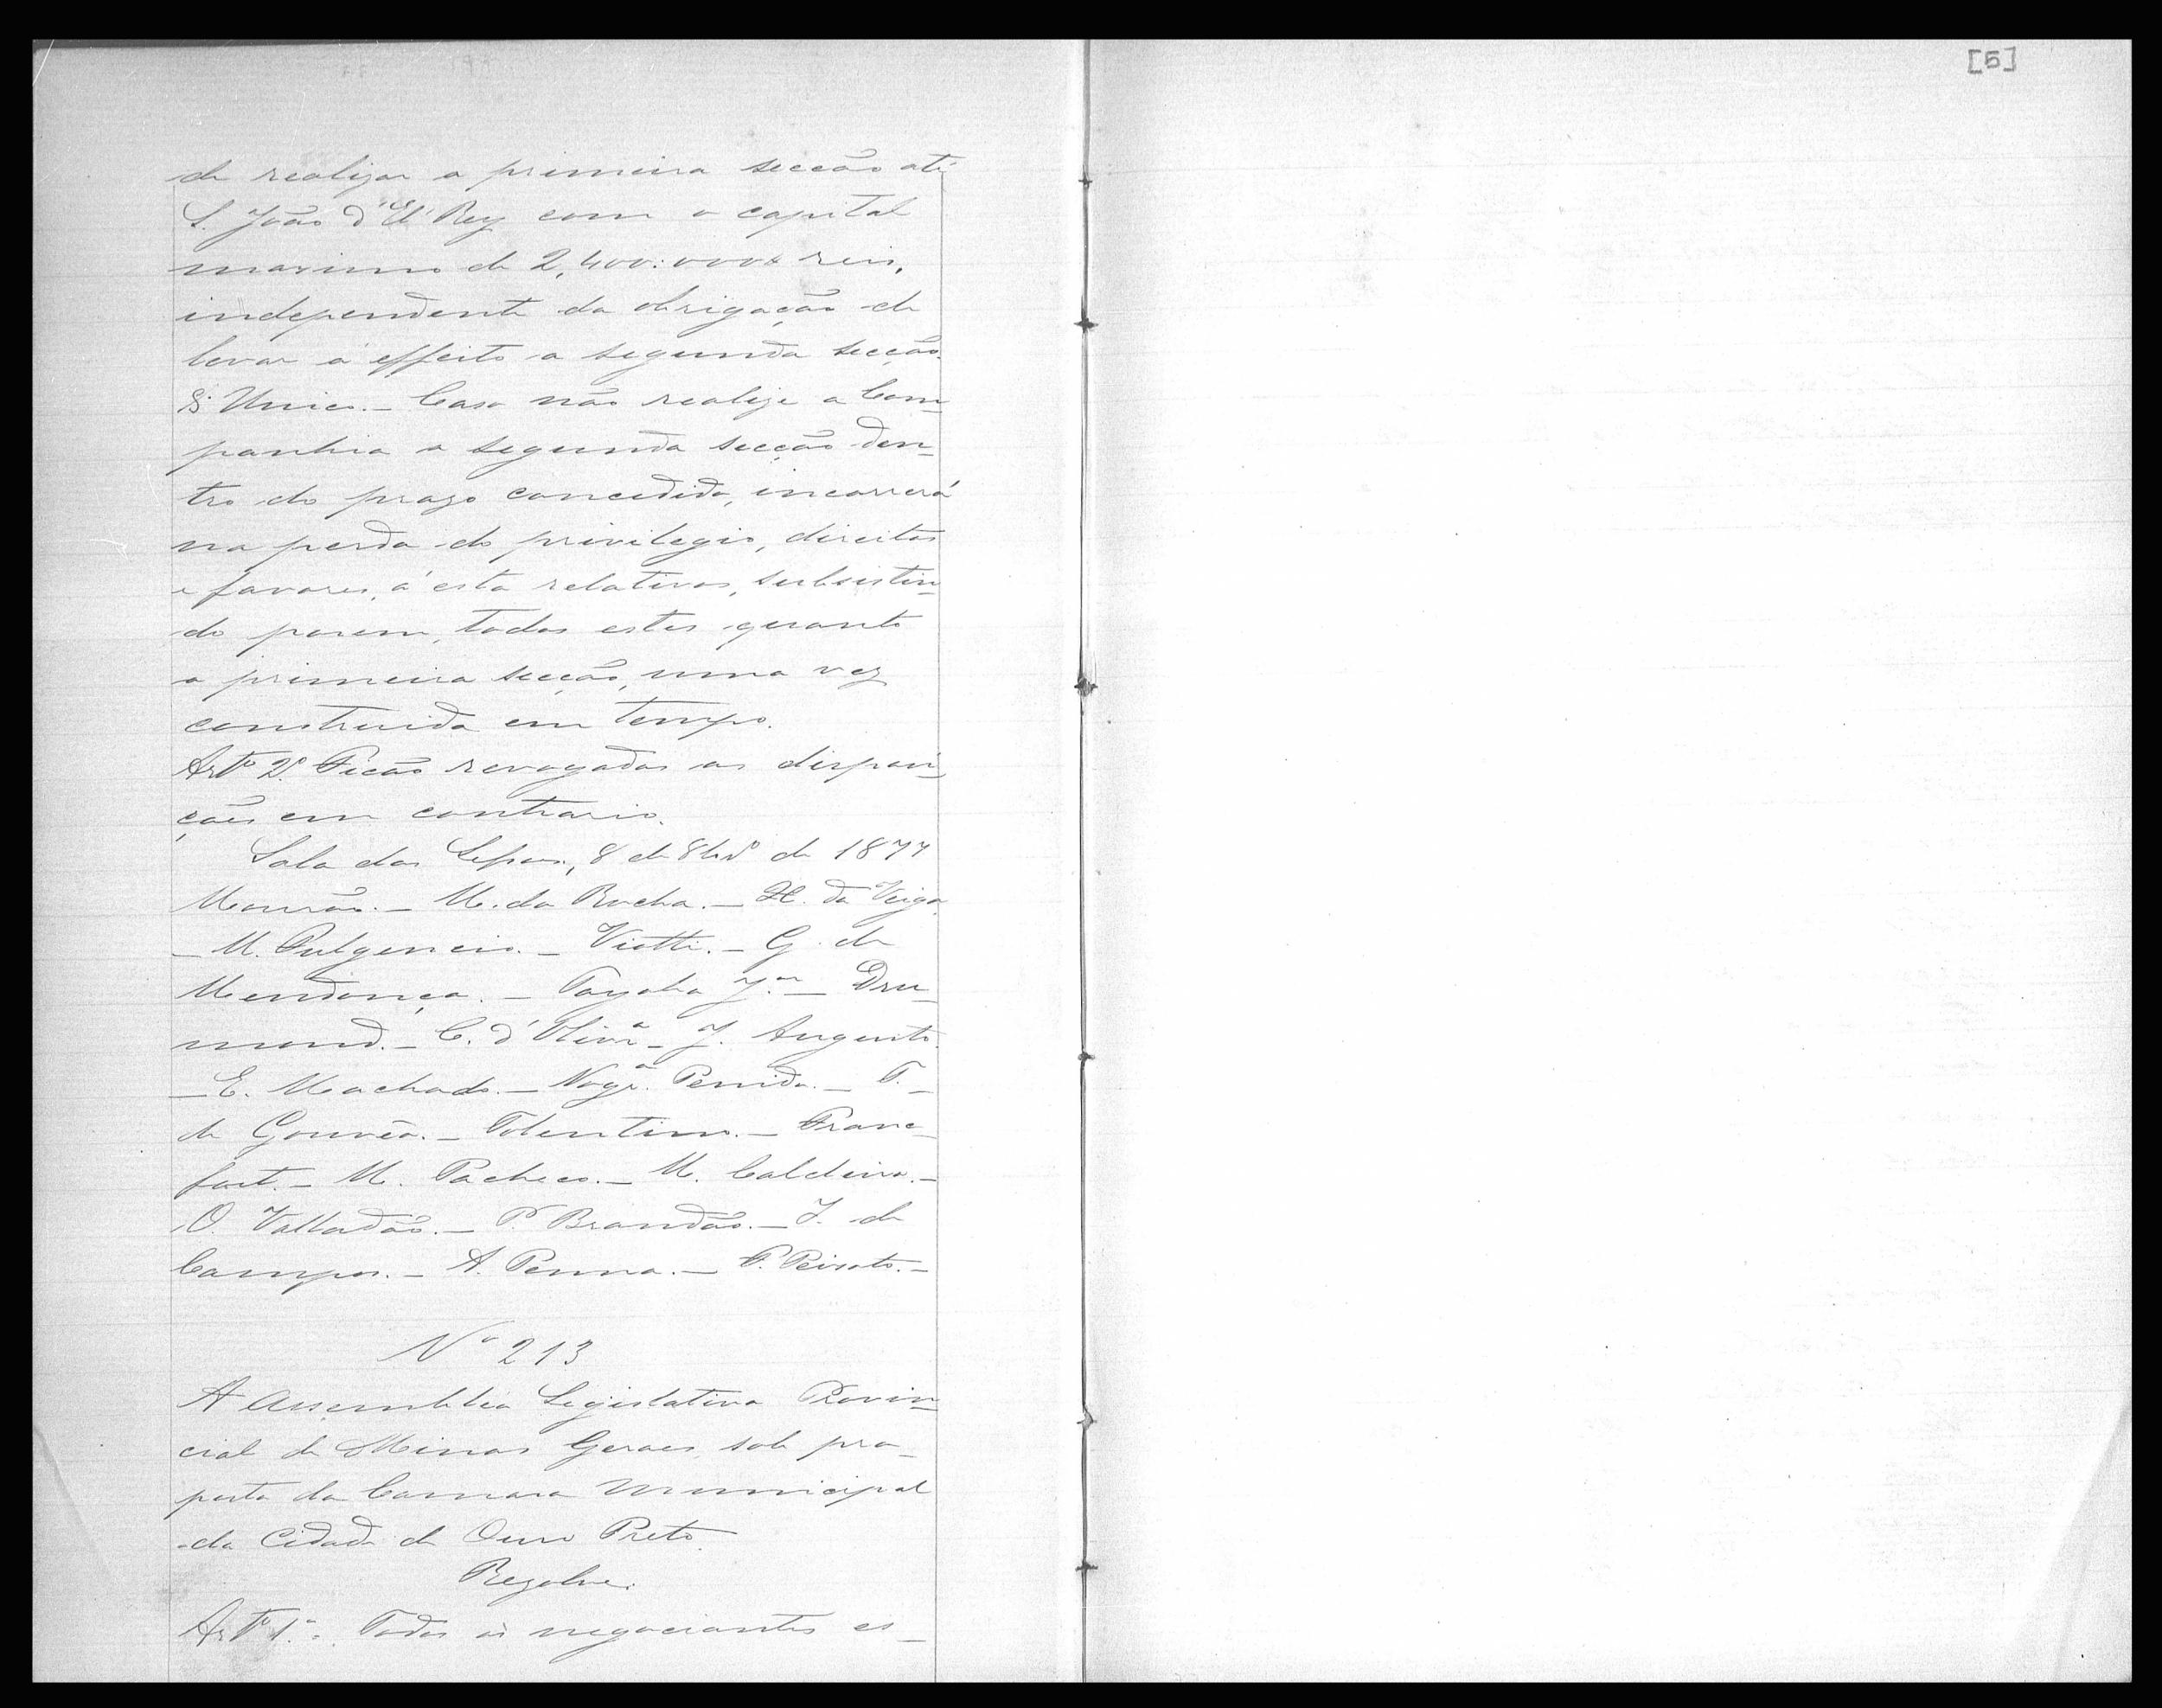 de realizar a primeira secção até
S. João d'El Rey com o capital
maximo de 2,400:000$ reis,
independente da obrigação de
levar á effeito a segunda secção.
§ Unico. — Caso não realize a Com-
panhia a segunda secção den-
tro do prazo concedido, incorrerá
na perda do privilegio, direitos
e favores, á esta relativos, subsistin-
do porem, todos estes quanto
a primeira secção, uma vez
construida em tempo.
Artº 2º. Ficão revogadas as disposi-
ções em contrario.
Sala das Sessões, 8 de 8brº de 1877
Mourão. — M. da Rocha. — H. da Veiga.
— M. Fulgencio. — Viotti. — G. de
Mendonça. — J.ºʳ — Dru-
mond. — C. d'Olivª — J. Augusto.
— E. Machado. — Nogª. Penido. — F.
de Gouvêa. — Tolentino. — Franc-
fort. — M. Pacheco. — M. Caldeira. —
O. Valladão. — P. Brandão. — J. de
Campos. — A. Penna. — F. Peixoto. —
Nº 213
A Assembléa Legislativa Provin-
cial de Minas Geraes sob pro-
posta da Camara Municipal
da Cidade de Ouro Preto.
Resolve:
Artº 1º. Todos os negociantes es-
[5]